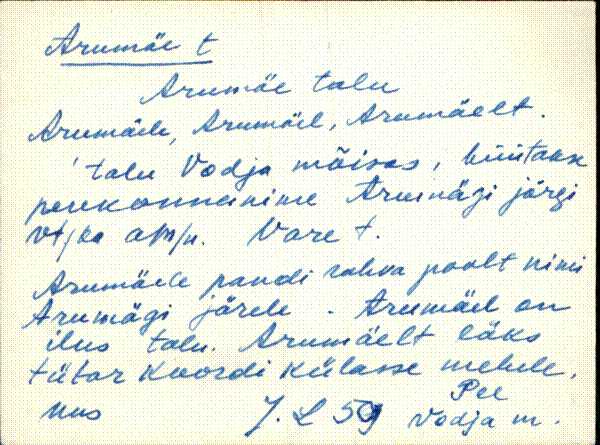 Arumäe t
Arumäe talu
Arumäele, Arumäel, Arumäelt.
talu Vodja mõisas, hüütakse
perekonnanime Arumägi järgi
Vt/ka a/m/n. Vare t.
Arumäele pandi rahva poolt nimi
Arumägi järele. Arumäel on
ilus talu. Arumäelt läks
tütar Koordi külasse mehele.
Pee
J. L 59 Vodja m.